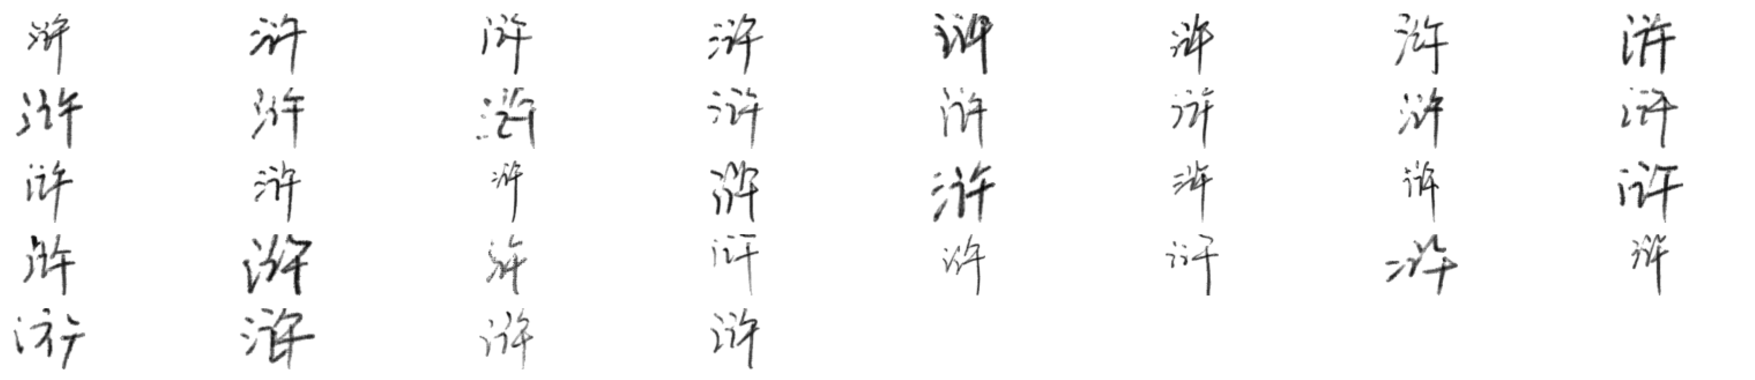 浒 浒 浒 浒 浒 浒 浒 浒
浒 浒 浒 浒 浒 浒 浒 浒
浒 浒 浒 浒 浒 浒 浒 浒
浒 浒 浒 浒 浒 浒 浒 浒
浒 浒 浒 浒